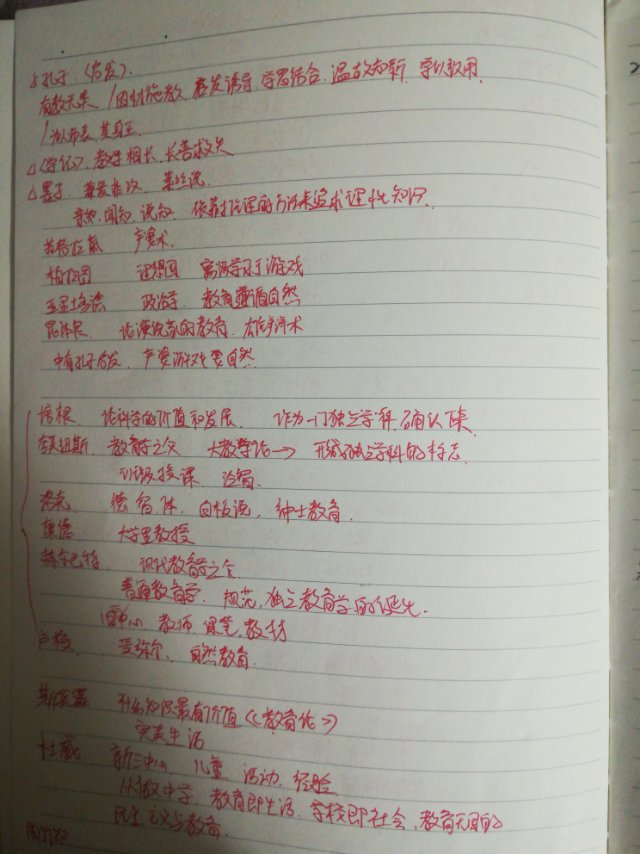 孔子 (启发).
有教无类 / 因材施教 启发诱导 学思结合 温故知新 学以致用
/ 为人师表 其身正
△《学记》 教学相长 长善救失
△墨子 兼爱非攻 素丝说
亲知,闻知,说知 依靠推理的方法来追求理性知识.
苏格拉底 产婆术.
柏拉图 理想国 寓学习于游戏
亚里士多德 政治学. 教育遵循自然
昆体良 论演说家的教育. 雄辩术
中有孔子启发, 产婆游戏要自然.
培根 论科学的价值和发展. 作为一门独立学科确认下来.
夸美纽斯 教育学之父 大教学论→ 形成独立学科的标志
班级授课. 泛智.
洛克 德 智 体. 白板说, 绅士教育.
康德 大学里教授
赫尔巴特 现代教育学之父
普通教育学. 规范,独立教育学的诞生.
旧三中心 教师 课堂,教材
卢梭 爱弥尔. 自然教育.
斯宾塞 什么知识最有价值《教育论》
完美生活
杜威. 新三中心 儿童 活动. 经验
从做中学. 教育即生活. 学校即社会,教育无目的
民主主义与教育.